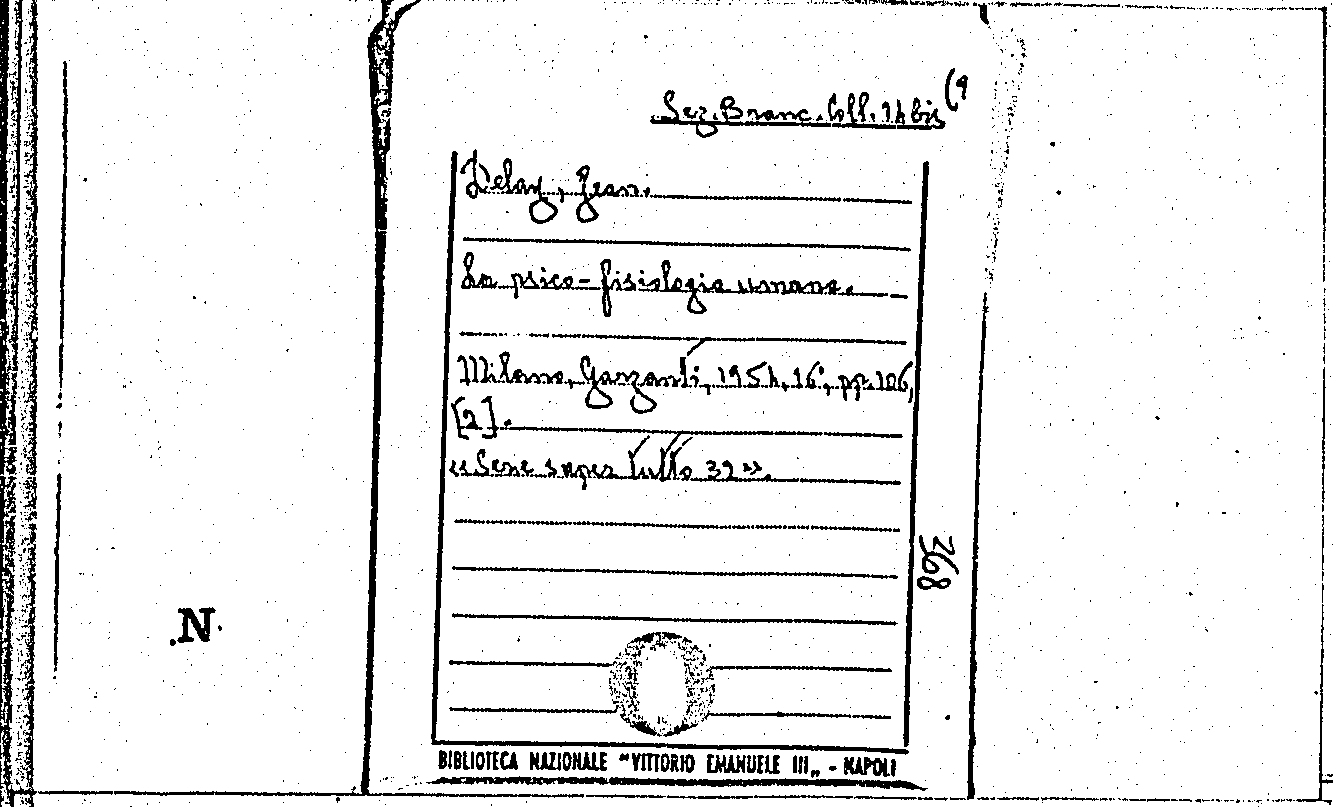 Sez. Branc. Coll. 14 bis (9
Delay, Jean.
La psico-fisiologia umana.
Milano, Garzanti, 1954, 16°, pp. 106,
[2].
«Serie saper tutto 39».
368
.N.
BIBLIOTECA NAZIONALE "VITTORIO EMANUELE III„ - NAPOLI